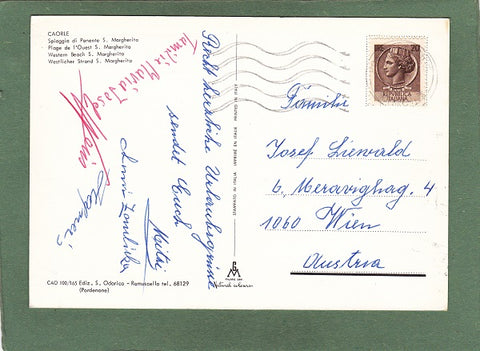 CAORLE
Spiaggia di Ponente S. Margherita
Plage de l'Ouest S. Margherita
Western Beach S. Margherita
Westlicher Strand S. Margherita
Familie Maria Josef
Recht herzliche Urlaubsgrüsse
sendet Euch
Familie
Josef Liewald
6, Meravighag. 4
1060 Wien
Austria
CAD 100/165 Ediz. S. Odorico - Ramuscello tel. 68129
(Pordenone)